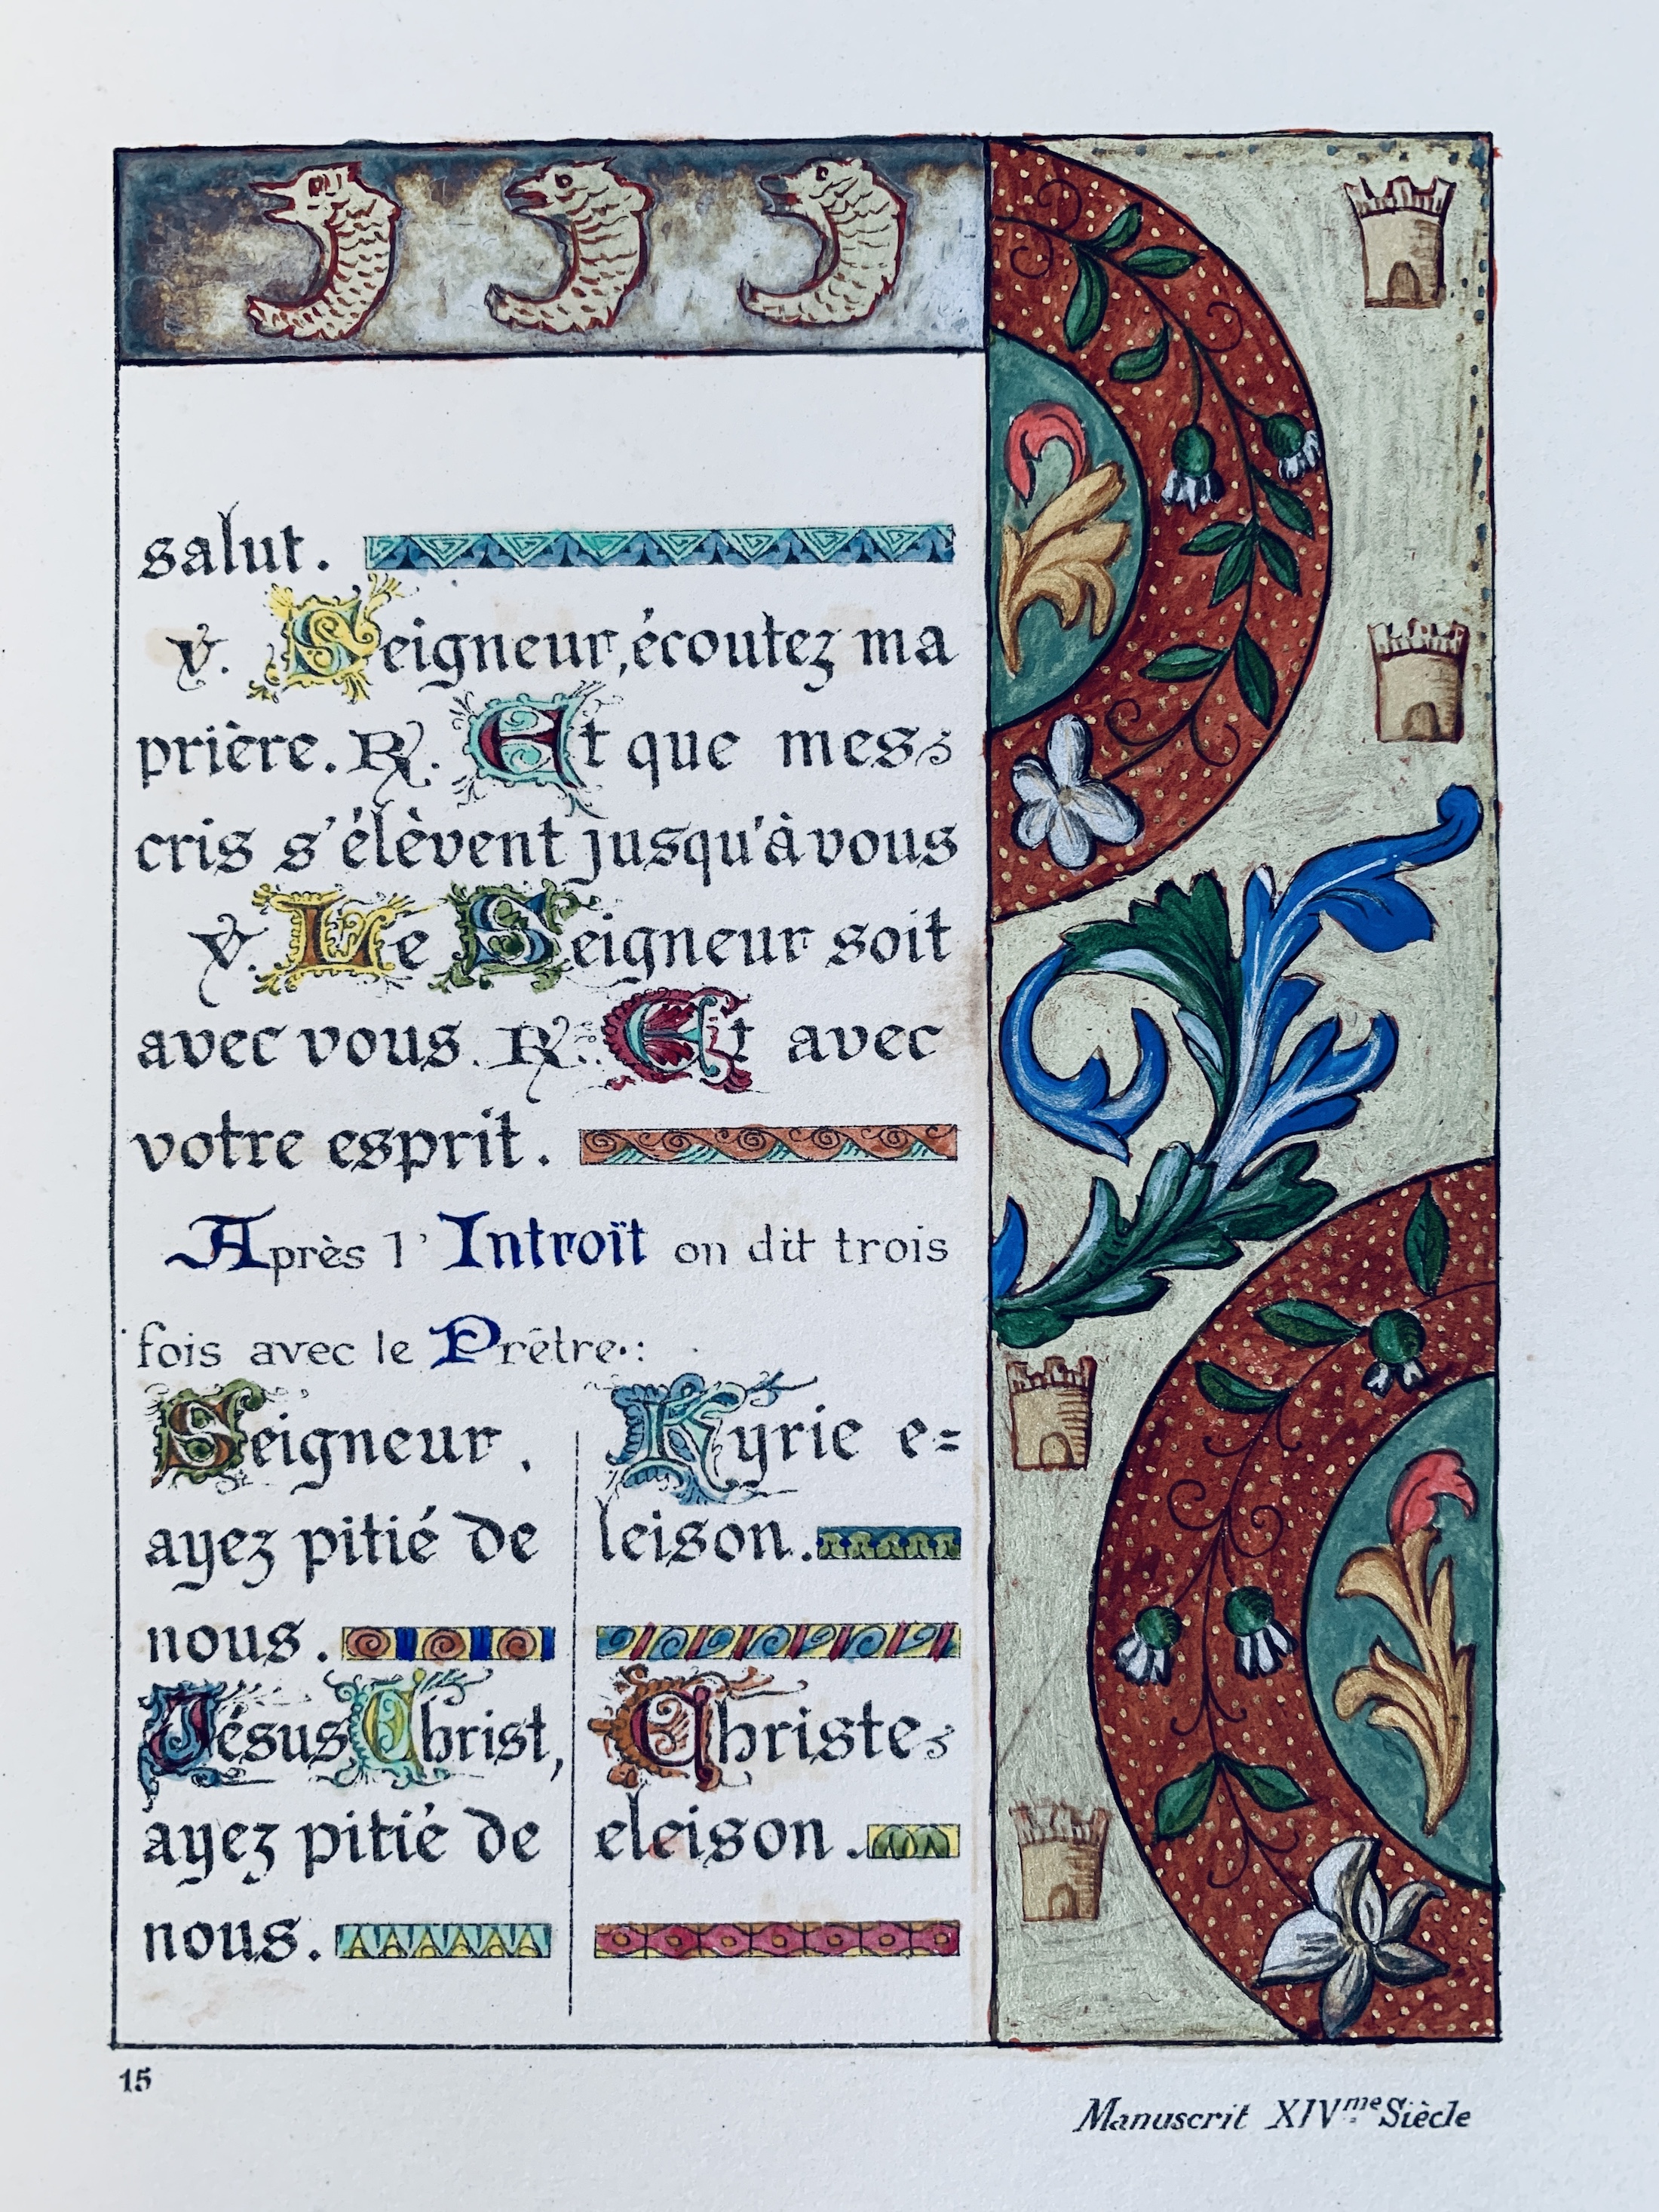 salut.
℣. Seigneur, écoutez ma
prière. ℟. Et que mes
cris s'élèvent jusqu'à vous
℣. Le Seigneur soit
avec vous. ℟. Et avec
votre esprit.
Après l'Introït on dit trois
fois avec le Prêtre :
Seigneur,
ayez pitié de
nous.
Jésus Christ,
ayez pitié de
nous.
Kyrie e=
leison.
Christe
eleison.
15
Manuscrit XIVme Siècle